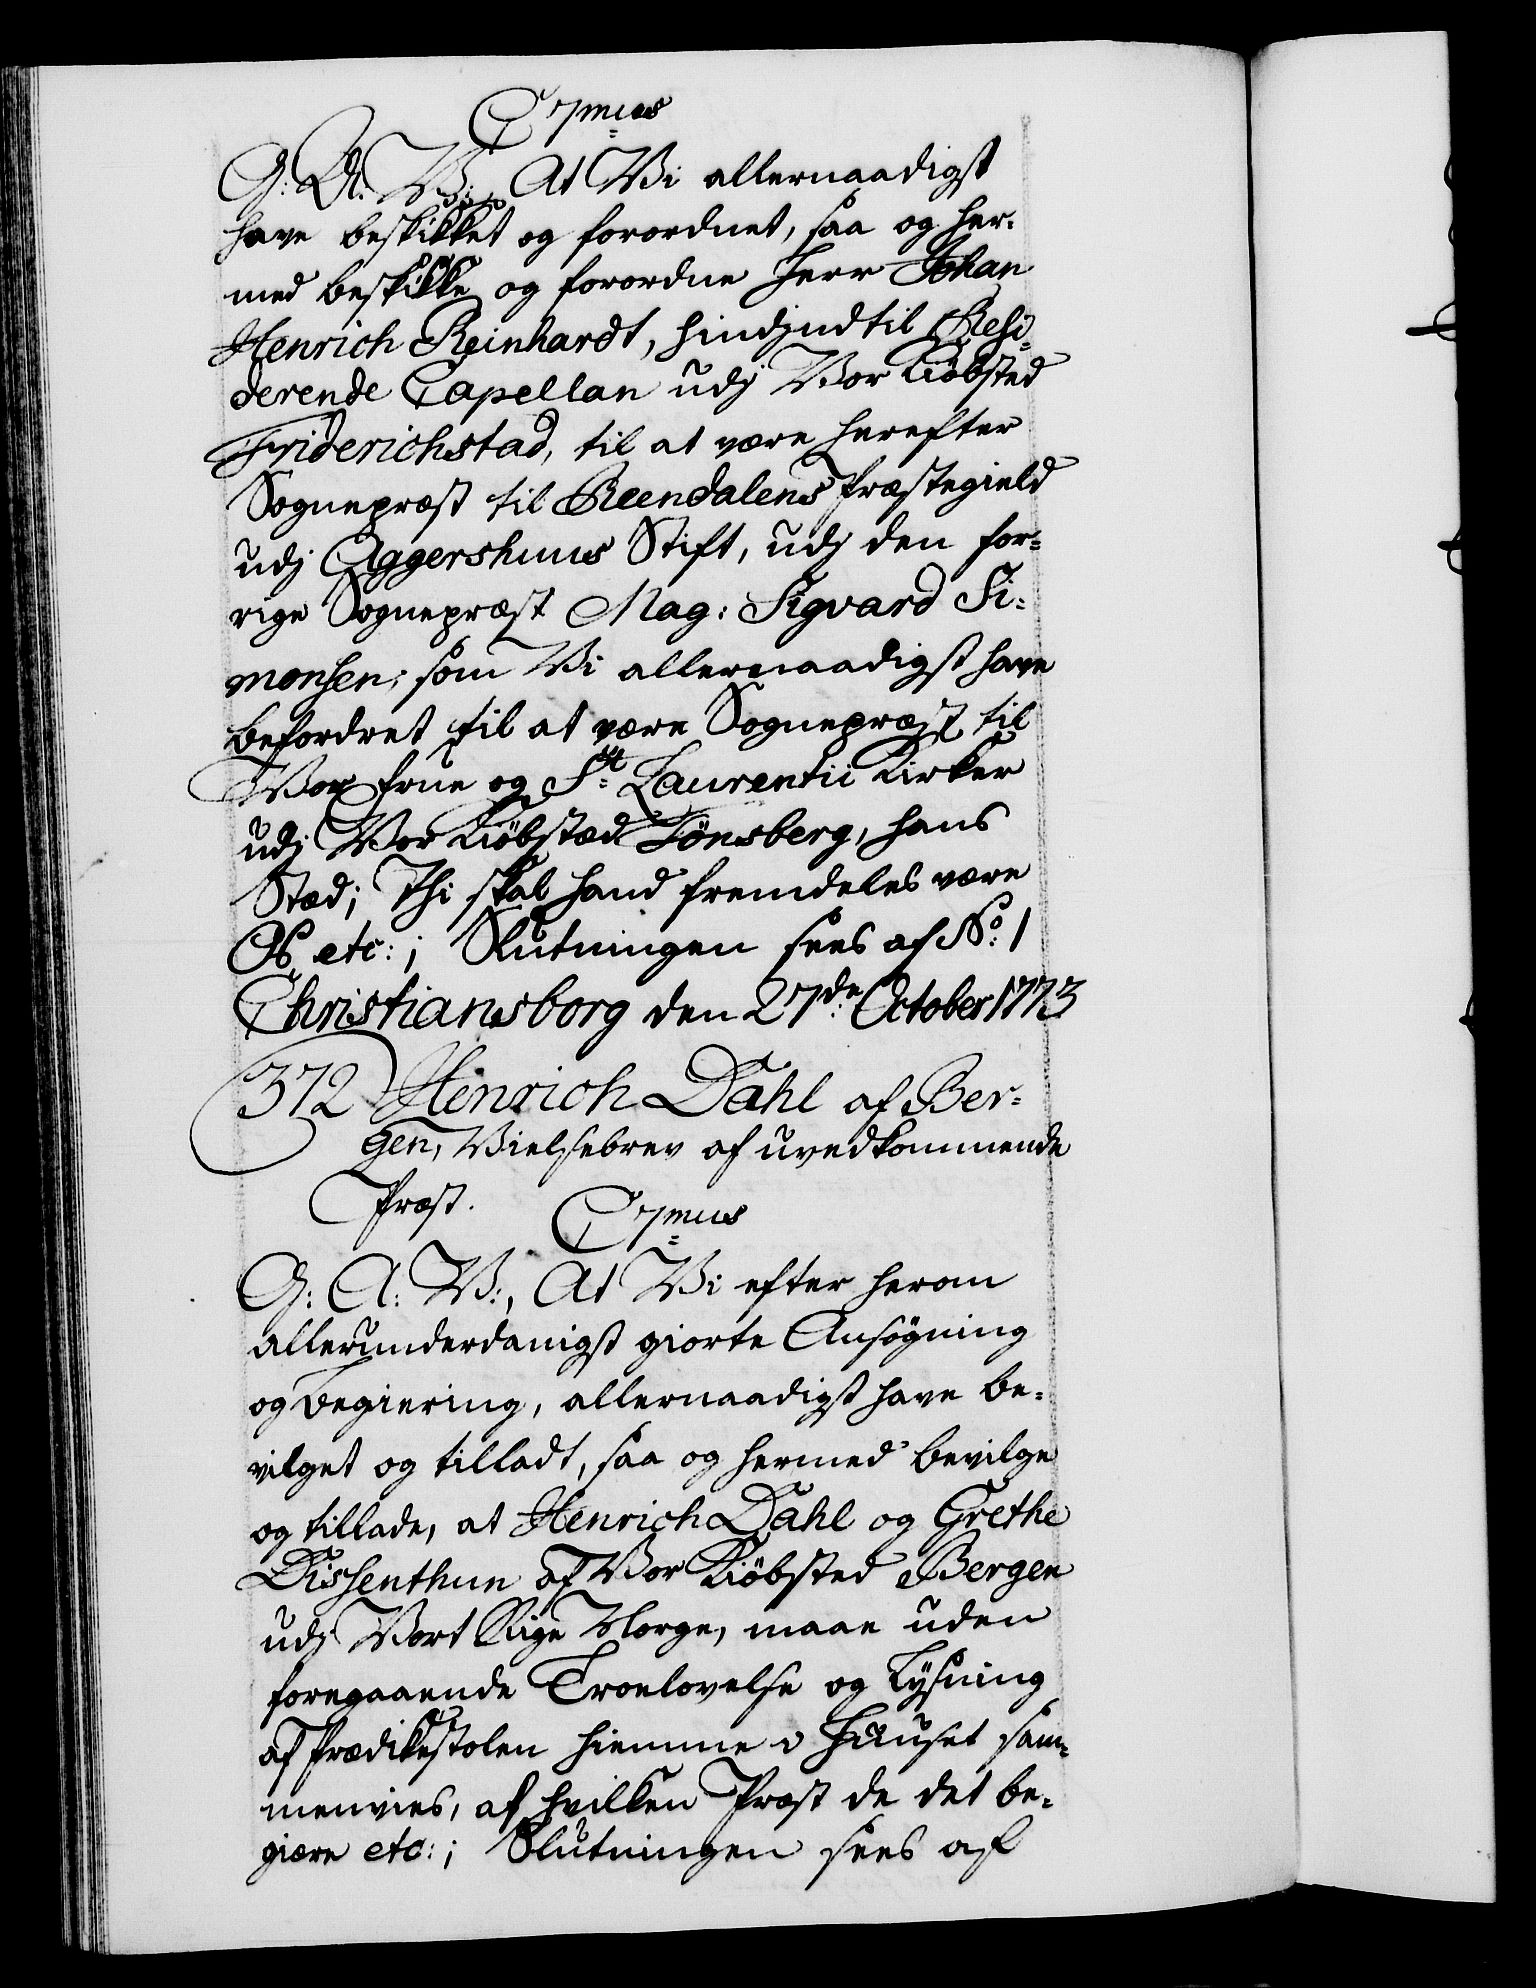 C 7mus
G: A: V:, At Vi allernaadigst
have beskikket og forordnet, saa og her-
med beskikke og forordne Herr Johan
Henrich Reinhardt, hindindtil Resi-
derende Capellan udj Vor Kiöbsted
Friderichstad, til at være herefter
Sognepræst til Reendalens Præstegield
udj Aggershuus Stift, udj den for-
rige Sognepræst Mag: Sigvard Si-
monsen, som Vi allernaadigst have
befordret til at være Sognepræst til
Vor Frue og St: Laurentii Kirker
udj Vor Kiöbstæd Tönsberg, hans
Stæd; Thi skal hand fremdeles være
Os etc:; Slutningen sees af No: 1
Christiansborg den 27de October 1773
372 Henrich Dahl af Ber-
gen, Vielsebrev af uvedkommende
Præst. C 7mus
G: A: V:, At Vi efter herom
allerunderdanigst giorte Ansögning
og Begiering, allernaadigst have be-
vilget og tilladt, saa og hermed bevilge
og tillade, at Henrich Dahl og Grethe
Dissenthun af Vor Kiöbsted Bergen
udj Vort Rige Norge, maae uden
foregaaende Troelovelse og Lysning
af Prædikestolen hiemme i Huuset sam-
menvies, af hvilken Præst de det be-
giere etc:; Slutningen sees af